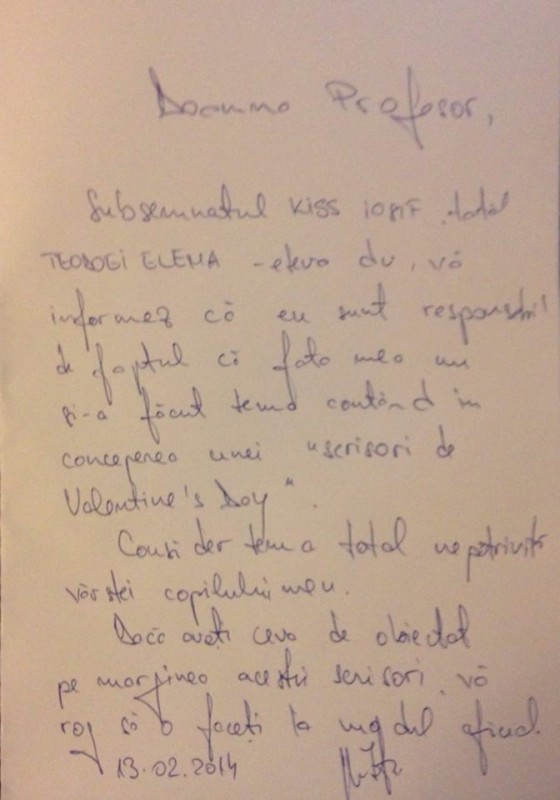 Doamna Profesor,
Subsemnatul KISS IOSIF, tatăl
TEODOEI ELENA - eleva dv, vă
informez că eu sunt responsabil
de faptul că fata mea nu
și-a făcut tema constând în
conceperea unei "scrisori de
Valentine's Day".
Consider tema total nepotrivită
vârstei copilului meu.
Dacă aveți ceva de obiectat
pe marginea acestei scrisori, vă
rog să o faceți la modul oficial.
13.02.2014